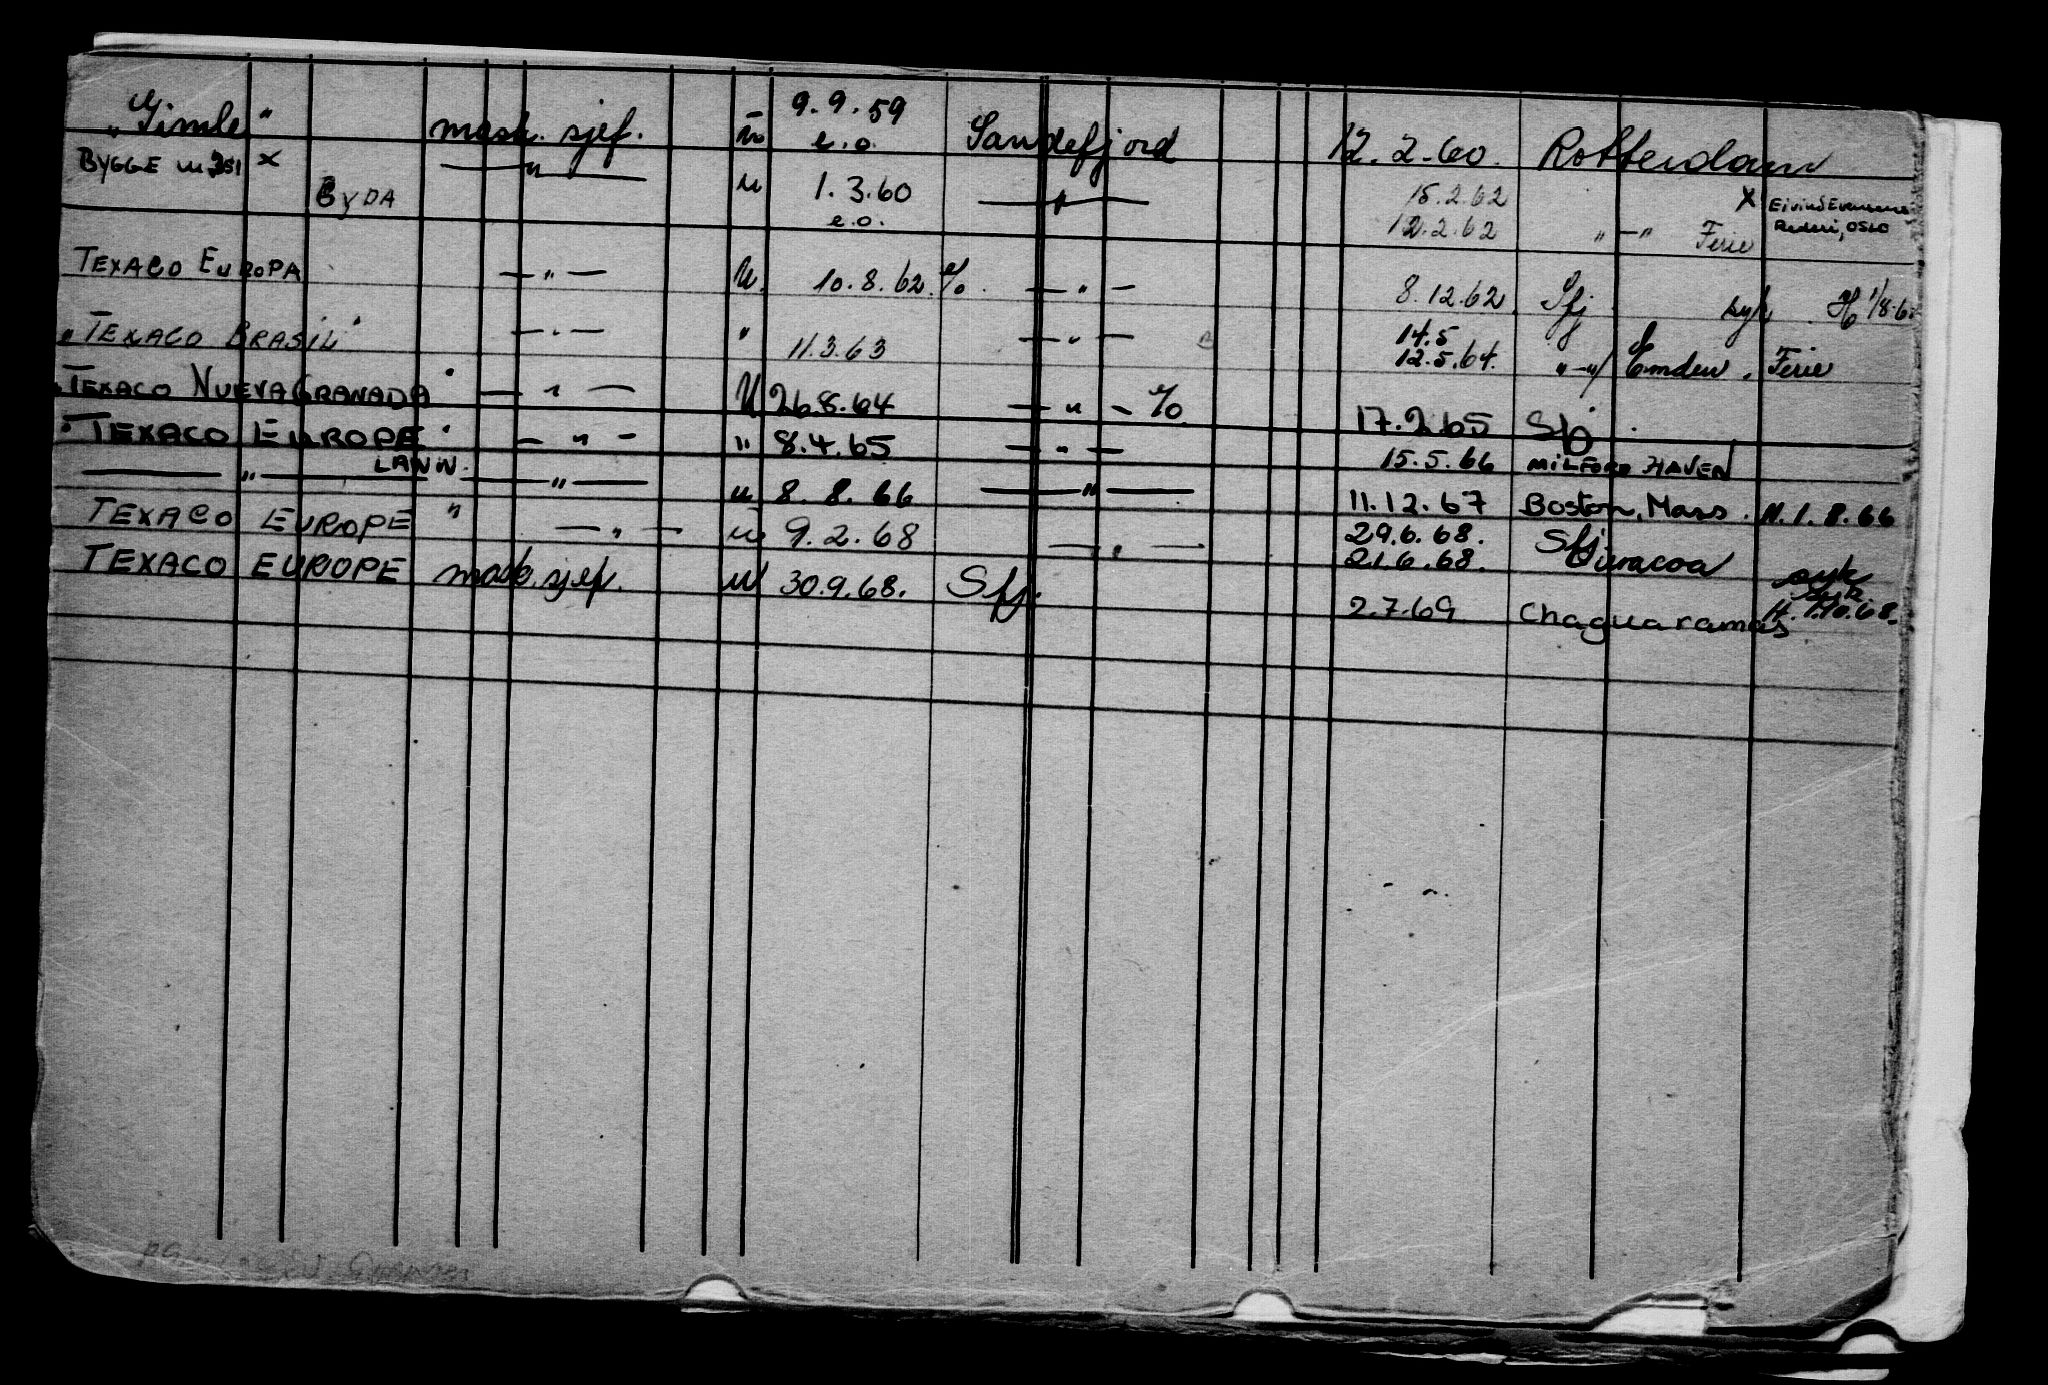 „Gimle" mask. sjef. m 9.9.59 e.o. Sandefjord 12.2-60. Rotterdam
BYGGE nr 351 x BYDA —"— u 1.3.60 e.o. —"— 15.2.62 x Eivind Evensens Rederi, OSLO
12.2.62 „—" Ferie
TEXACO EUROPA —„— u. 10.8.62 % —„— 8.12.62 Sfj syk H 1/8-6
„TEXACO BRASIL" —„— " 11.3.63 —„— 14.5
12.5.64. „—"/ Emden. Ferie
„TEXACO NUEVA GRANADA" —„— u 26.8.64 —„— % 17.2.65 Sfj.
"TEXACO EUROPE" —„— " 8.4.65 —„— 15.5.66 MILFORD HAVEN
—"— LANW. —"— u 8.8.66 —"— 11.12.67 Boston, Mass. H.1.8.66
TEXACO EUROPE " —„— u 9.2.68 —„— 29.6.68. Sfj
21.6.68. Curacoa syk
TEXACO EUROPE mask. sjef. u 30.9.68. Sfj. 2.7.69 Chaguaramas syk. H. 1.10.68.